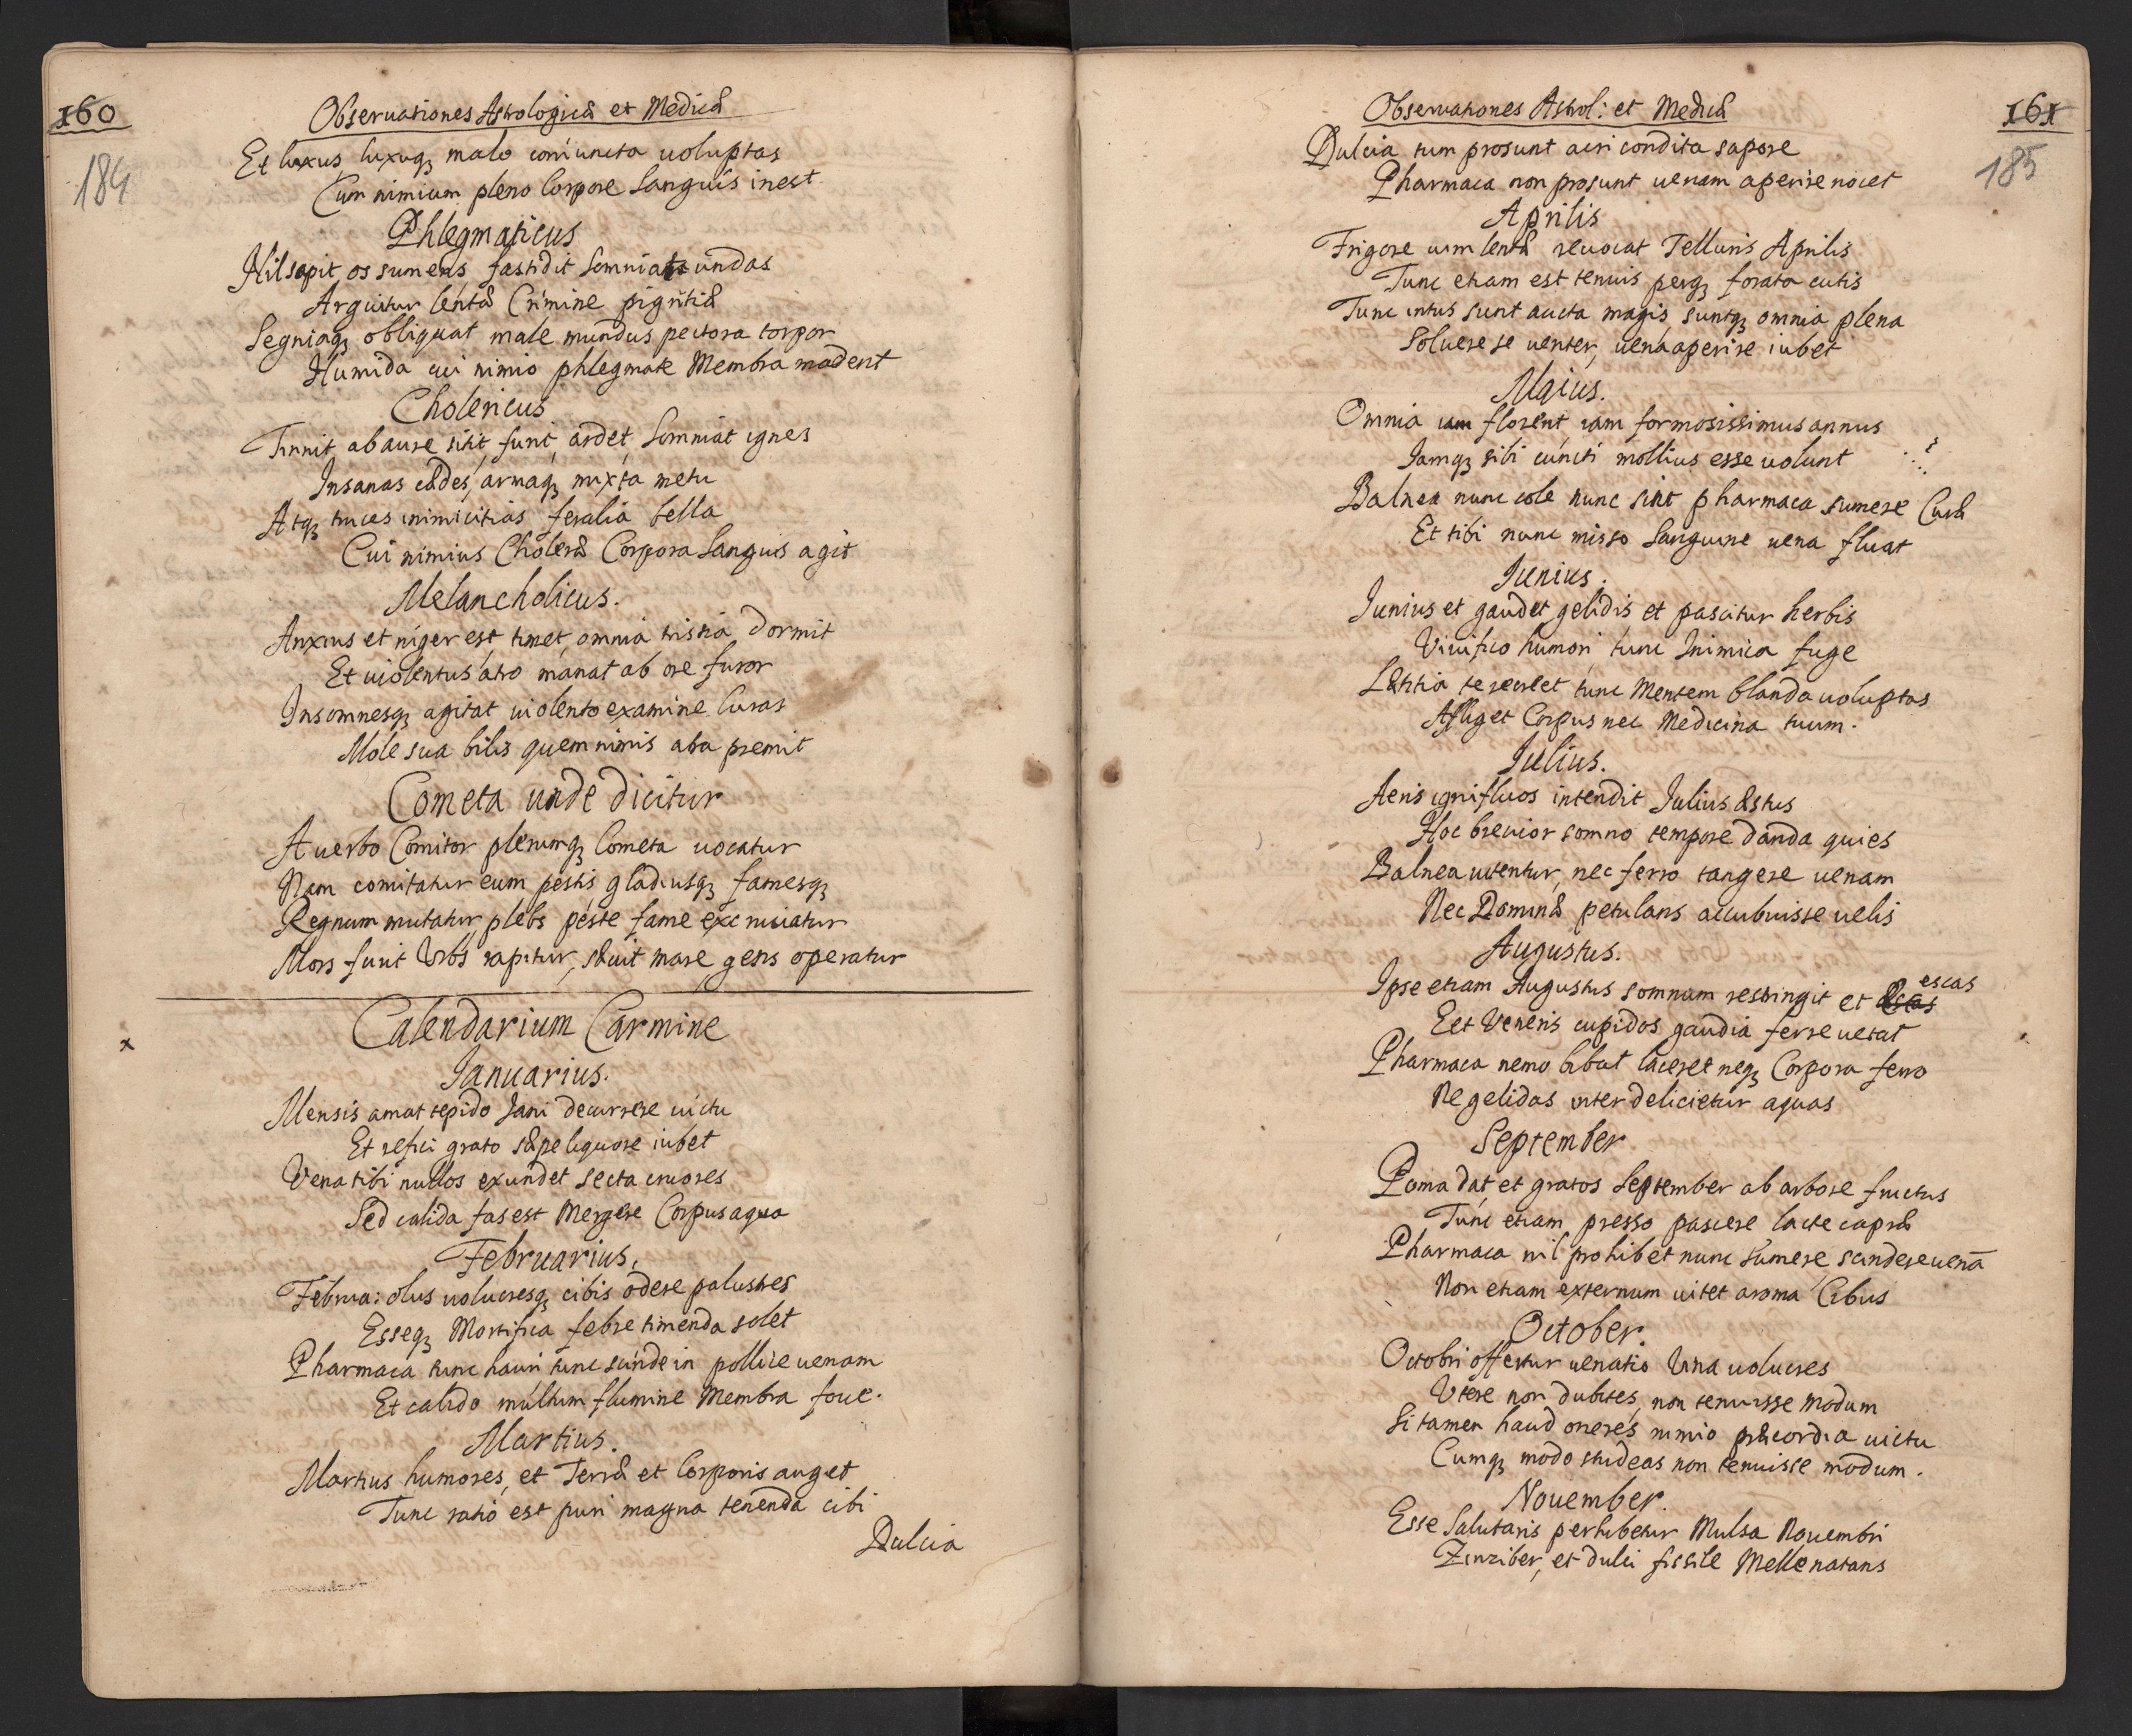 160
184
Obseruationes Astrologicæ et Medicæ
Et luxus luxuqȝ malo coniuncta uoluptas
Cum nimium pleno Corpore Sanguis inest
Phlegmaticus
Nil sapit os sumens fastidit Somniat undas
Arguitur lentæ Crimine pigritiæ
Segniaqȝ obliquat male mundus pectora torpor
Humida cui nimio phlegmate Membra madent
Cholericus
Tinnit ab aure sitit, furit, ardet, Somniat ignes
Insanas cædes, armaqȝ mixta metu
Atqȝ truces inimicitias feralia bella
Cui nimius Choleræ Corpora Sanguis agit
Melancholicus.
Anxius et niger est, timet, omnia tristia dormit
Et uiolentus atro manat ab ore furor
Insomnesqȝ agitat uiolento examine Curas
Mole sua bilis quem nimis atra premit
Cometa unde dicitur
A uerbo Comitor plerumqȝ Cometa uocatur
Nam comitatur eum pestis gladiusqȝ famesqȝ
Regnum mutatur, plebs peste fame excruciatur
Mors furit Urbs rapitur, sæuit mare gens operatur
x
Calendarium Carmine
Ianuarius.
Mensis amat tepido Jani decurrere uictu
Et refici grato sæpe liquore iubet
Vena tibi nullos exundet secta cruores
Sed calida fas est Mergere Corpus aqua
Februarius.
Februa: olus uolucresqȝ cibis odere palustres
Esseqȝ Mortifica febre timenda solet
Pharmaca tunc hauri tunc scinde in pollice uenam
Et calido multum flumine Membra foue.
Martius.
Martius humores, et Terræ et Corporis auget
Tunc ratio est puri magna tenenda cibi
Dulcia
161
185
Obseruationes Astrol: et Medicæ
Dulcia tum prosunt acri condita sapore
Pharmaca non prosunt uenam aperire nocet
Aprilis
Frigore uim lentæ reuocat Telluris Aprilis
Tunc etiam est tenuis perqȝ forata cutis
Tunc intus sunt aucta magis, suntqȝ omnia plena
Soluere se uenter, uenā aperire iubet
Maius.
Omnia iam florent, iam formosissimus annus
Jamqȝ sibi cuncti mollius esse uolunt
Balnea nunc cole nunc sint pharmaca sumere Curæ
Et tibi nunc misso Sanguine uena fluat
Junius.
Junius et gaudet gelidis et pascitur herbis
Viuifico humori tunc Inimica fuge
Lætitia te recreet tunc Mentem blanda uoluptas
Affliget Corpus nec Medicina tuum.
Julius.
Aeris ignifluos intendit Julius æstus
Hoc breuior somno tempore danda quies
Balnea uitentur, nec ferro tangere uenam
Nec Dominæ petulans accubuisse uelis
Augustus.
escas
Ipse etiam Augustus somnum restringit et
Eet Veneris cupidos gaudia ferre uetat
Pharmaca nemo bibat laceret neqȝ Corpora ferro
Ne gelidas inter delicietur aquas
September
Poma dat, et gratos September ab arbore fructus
Tunc etiam presso pascere lacte capræ
Pharmaca nil prohibet nunc Sumere, scindere uenā
Non etiam externum uitet aroma Cibus
October.
Octobri offertur uenatio Una uolucres
Utere non dubites, non tenuisse modum
Si tamen haud oneres nimio præcordia uictu
Cumqȝ modo studeas non tenuisse modum.
Nouember.
Esse Salutaris perhibetur Mulsa Nouembri
Zinziber, et dulci fissile Melle natans